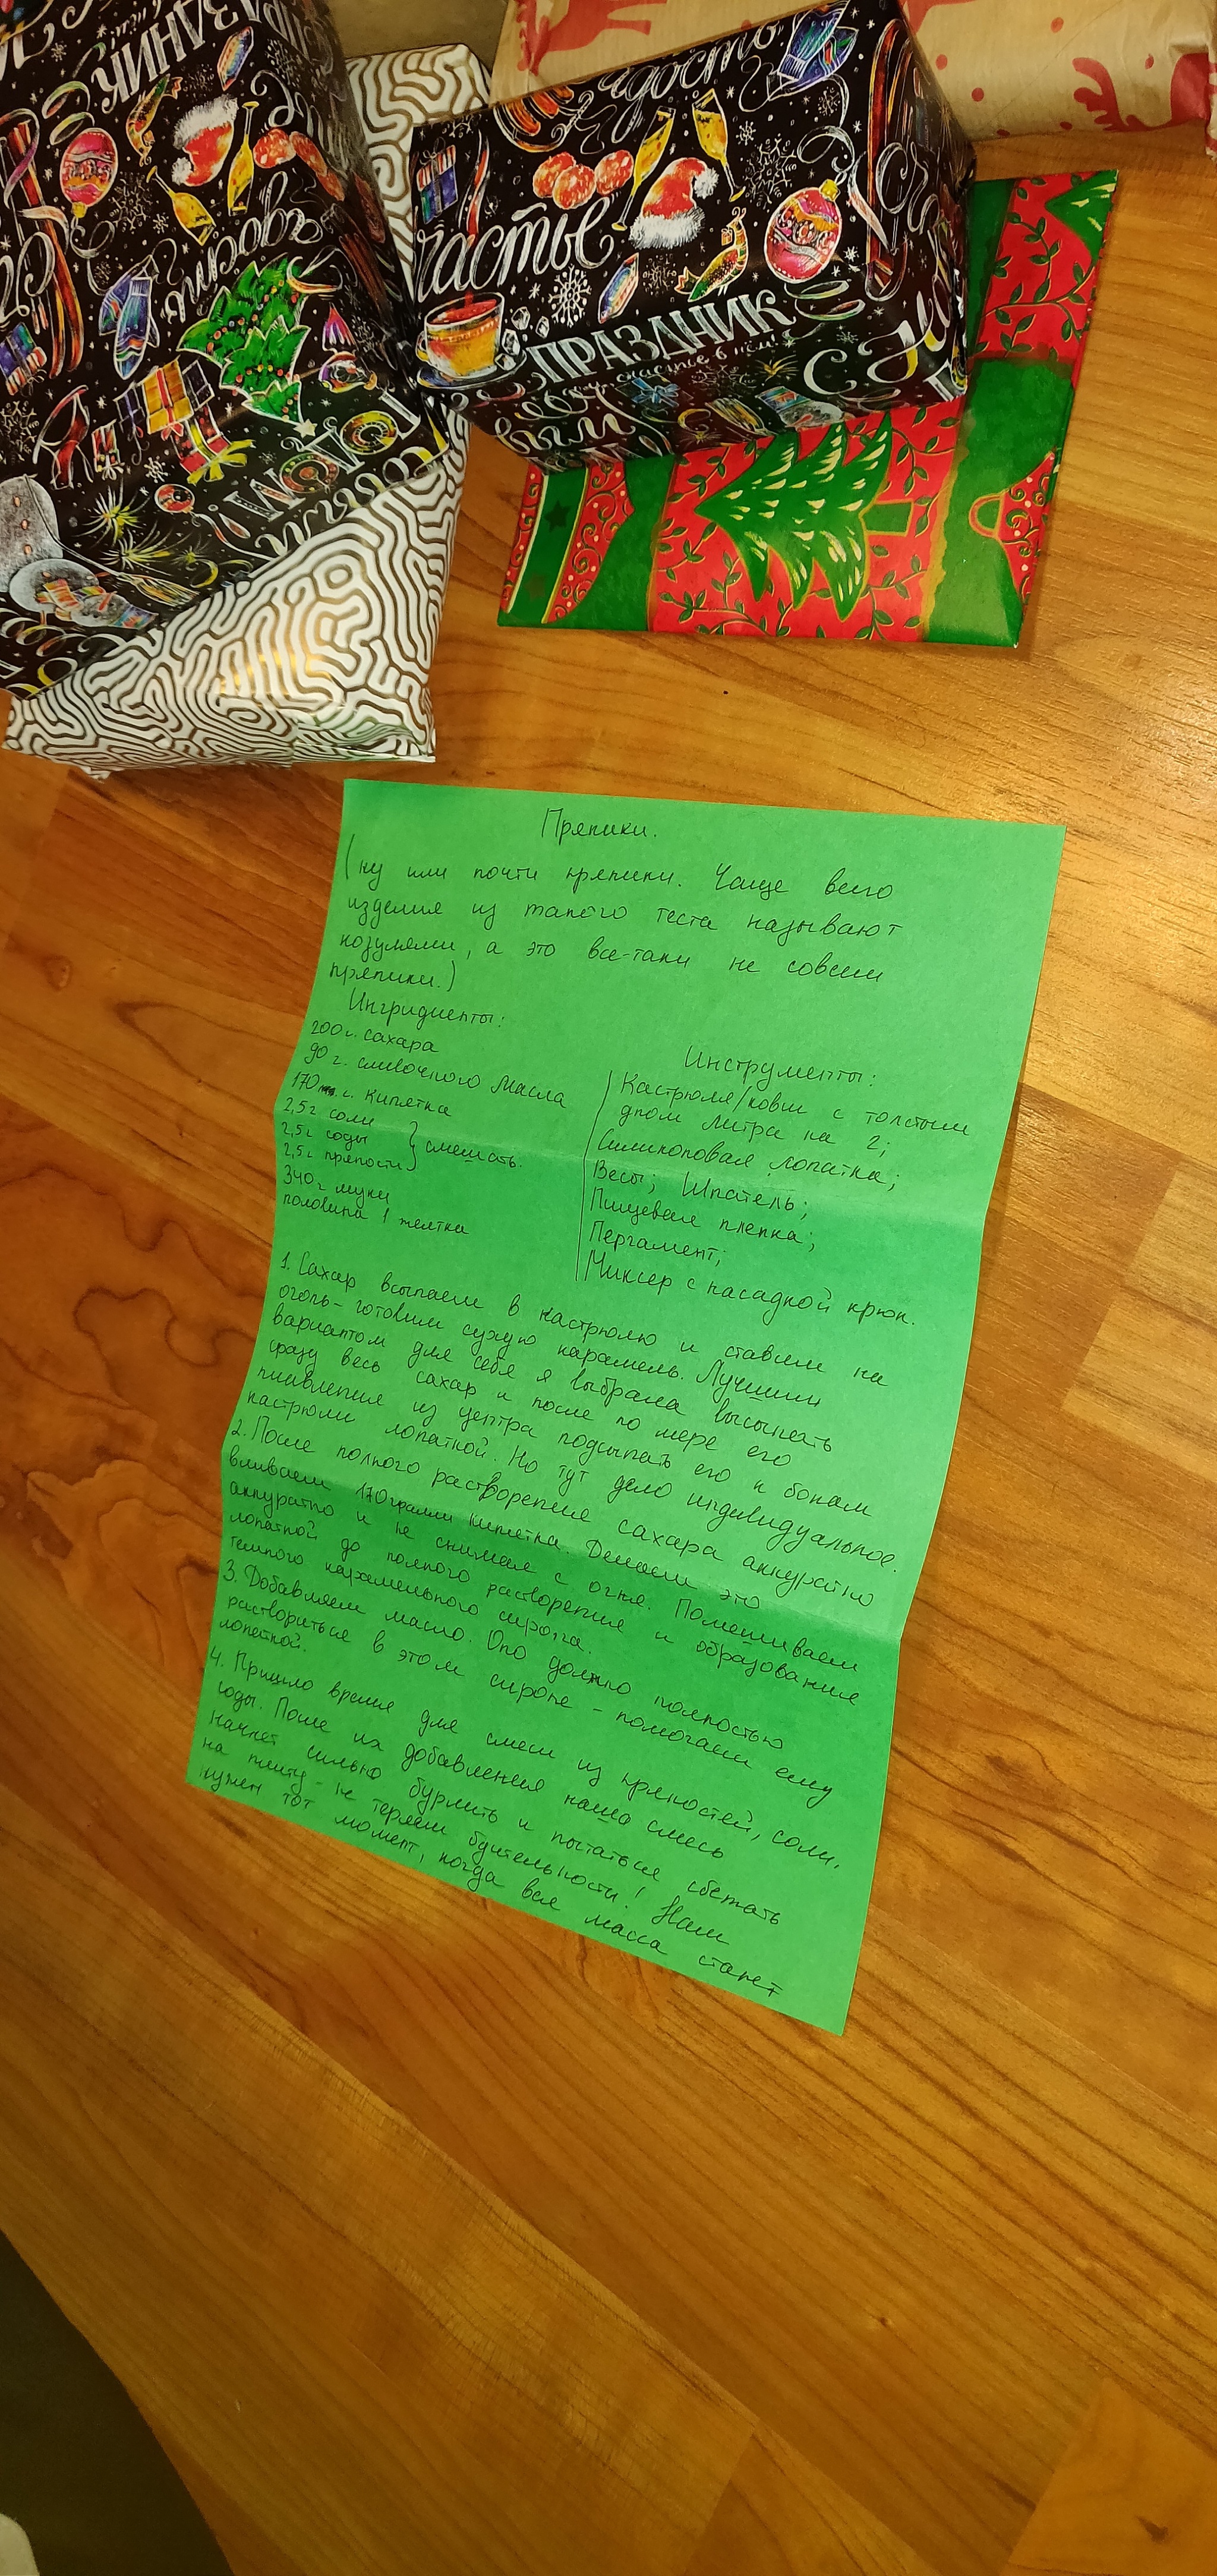 ПРАЗДНИК
радость
частье
ПРАЗДНИК
С Но
вым
Пряники.
(ну или почти пряники. Чаще всего
изделия из такого теста называют
козулями, а это все-таки не совсем
пряники.)
Ингридиенты:
200 г. сахара
90 г. сливочного масла
170 г. кипятка
2,5 г соли
2,5 г соды } смешать.
2,5 г пряности
340 г муки
половина 1 желтка
Инструменты:
Кастрюля/ковш с толстым
дном литра на 2;
Силиконовая лопатка;
Весы; Шпатель;
Пищевая пленка;
Пергамент;
Миксер с насадкой крюк.
1. Сахар всыпаем в кастрюлю и ставим на
огонь - готовим сухую карамель. Лучшим
вариантом для себя я выбрала высыпать
сразу весь сахар и после по мере его
плавления из центра подсыпать его к бокам
кастрюли лопаткой. Но тут дело индивидуальное.
2. После полного растворения сахара аккуратно
вливаем 170 грамм кипятка. Делаем это
аккуратно и не снимая с огня. Помешиваем
лопаткой до полного растворения и образования
темного карамельного сиропа.
3. Добавляем масло. Оно должно полностью
раствориться в этом сиропе - помогаем ему
лопаткой.
4. Пришло время для смеси из пряностей, соли,
соды. После их добавления наша смесь
начнет сильно бурлить и пытаться сбежать
на плиту - не теряем бдительности! Нам
нужен тот момент, когда вся масса станет